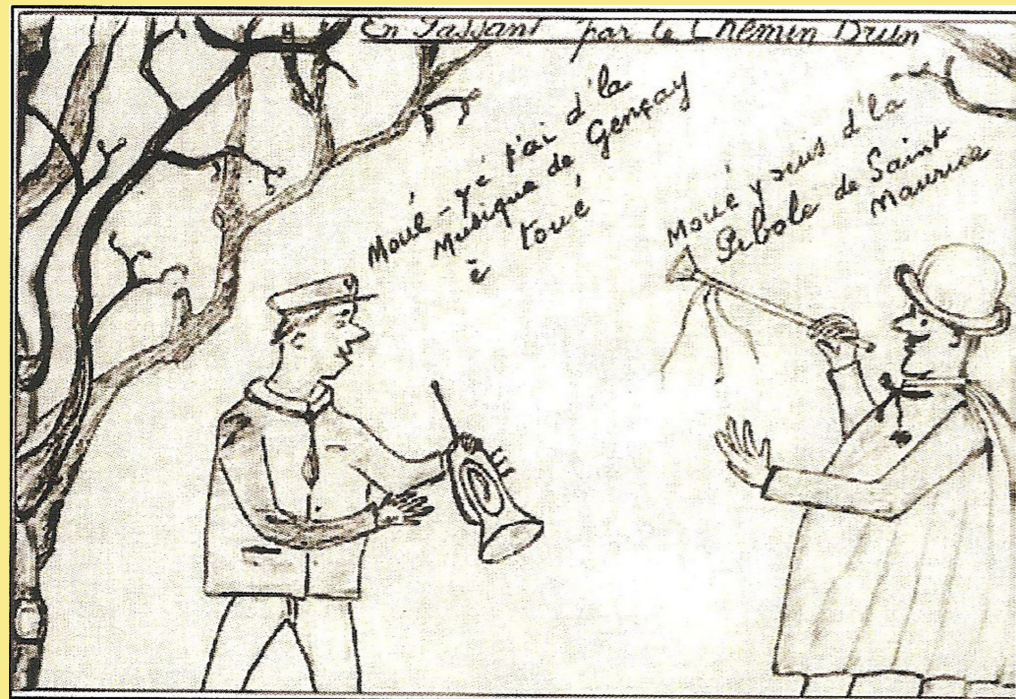 En Passant par le Chemin Druin
Moué - yé j'ai d'la
Musique de Gençay
è toué
Moué y suis d'la
Pibole de Saint
Maurice